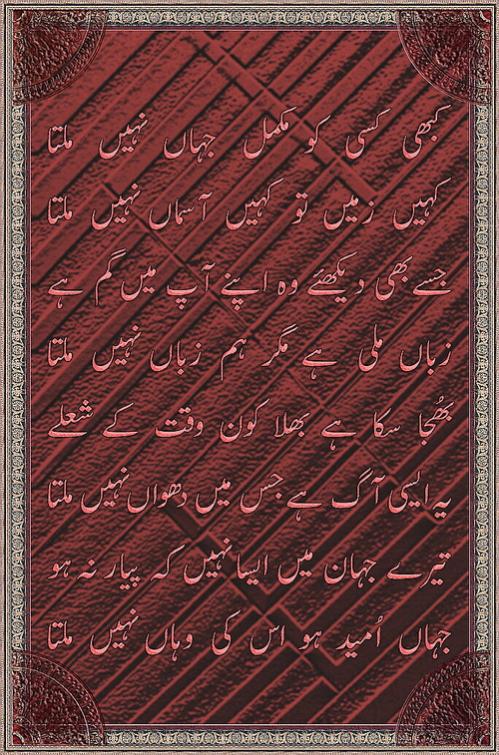 کبھی کسی کو مکمل جہاں نہیں ملتا
کہیں زمیں تو کہیں آسماں نہیں ملتا
جسے بھی دیکھئے وہ اپنے آپ میں گم ہے
زباں ملی ہے مگر ہم زباں نہیں ملتا
بُھجا سکا ہے بھلا کون وقت کے شعلے
یہ ایسی آگ ہے جس میں دھواں نہیں ملتا
تیرے جہان میں ایسا نہیں کہ پیار نہ ہو
جہاں اُمید ہو اس کی وہاں نہیں ملتا